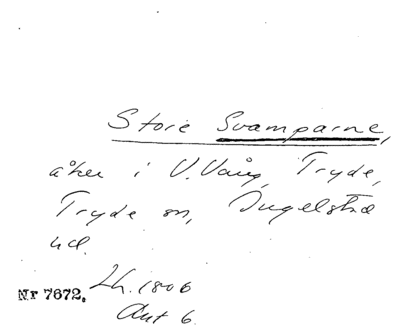 Store Svamparne,
åker i V. Vång, Tryde,
Tryde sn, Ingelstad
hd.
Lh. 1806
Nr 7672.
Akt 6.